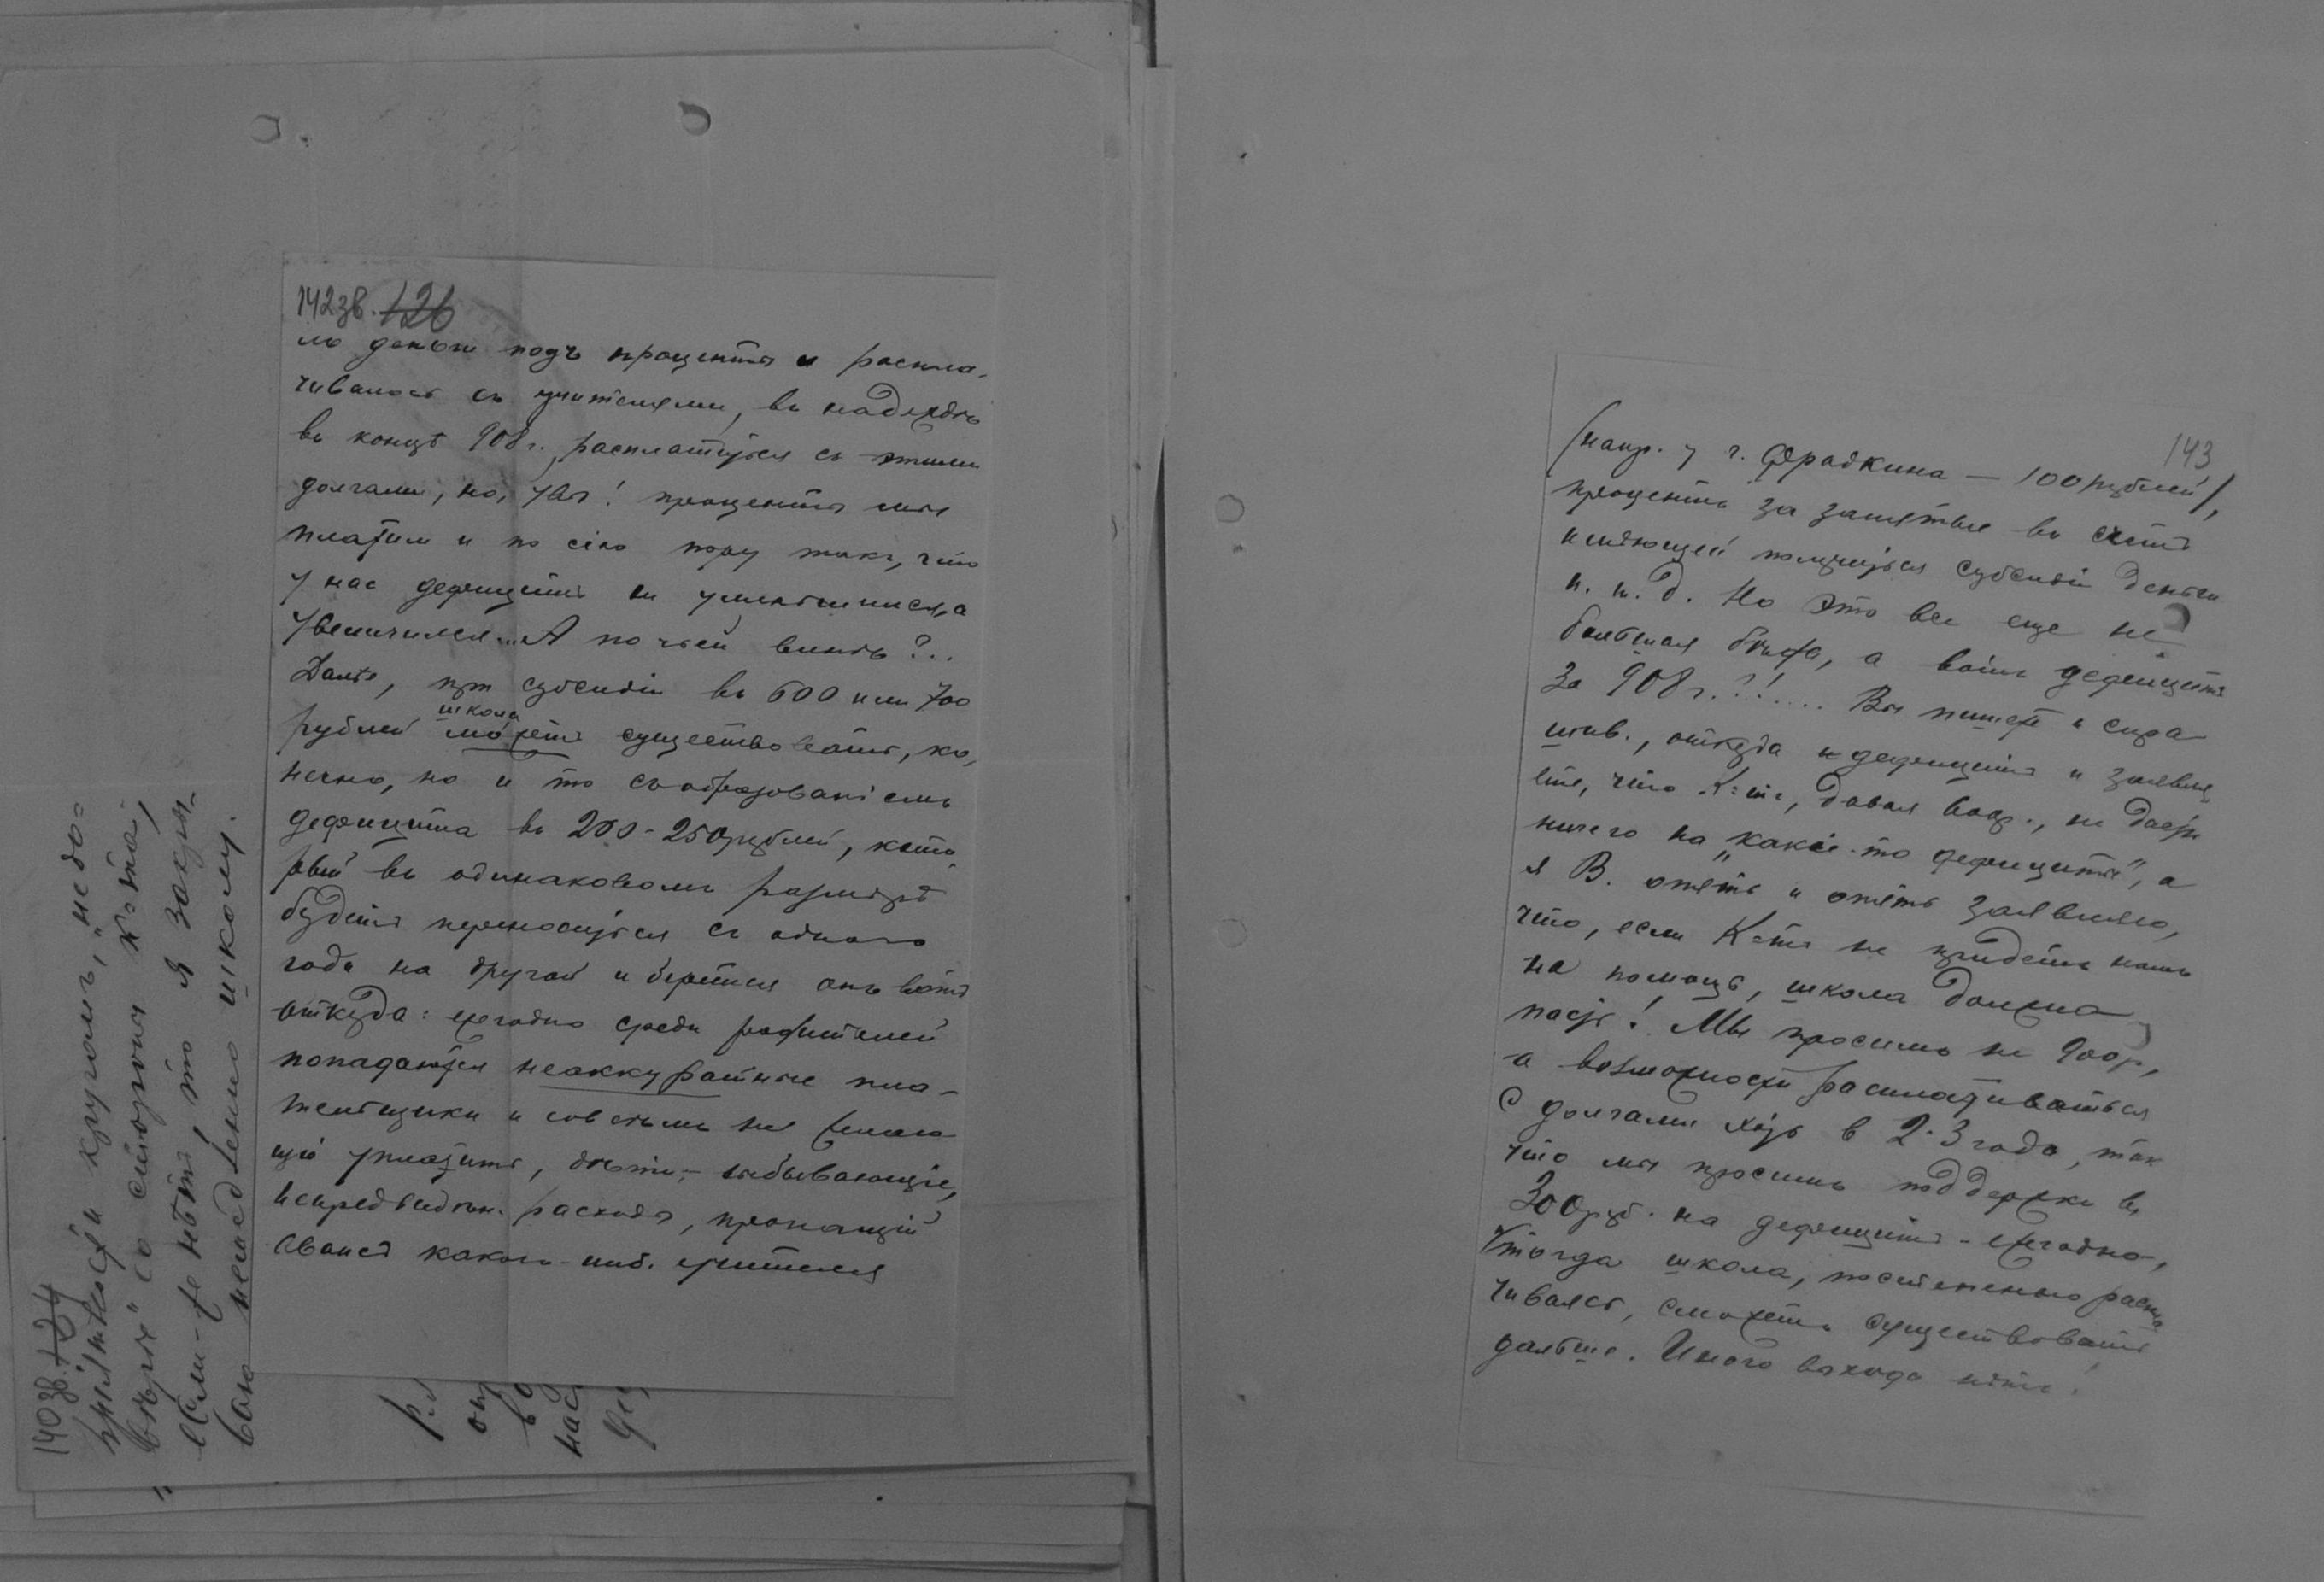 142зв. 126
ло деньги подъ проценты и распла-
чивалось съ учителями, въ надеждѣ
въ концѣ 908 г. расплатиться съ этими
долгами, но, увы! проценты мы
платим и по сію пору такъ, что
у нас дефицитъ не уменьшился, а
увеличился... А по чьей винѣ?..
Далѣе, при субсидіи въ 600 или 700
рублей школа можетъ существовать, ко-
нечно, но и то съ образованіемъ
дефицита въ 200-250 рублей, кото-
рый въ одинаковомъ размѣрѣ
будетъ переноситься съ одного
года на другой и берется онъ вотъ
откуда: ежегодно среди родителей
попадаются неаккуратные пла-
тельщики и совсѣмъ не
уплатить, дѣти, - выбывающіе,
непредвидѣн. расходы, пропащій
авансъ какого-ниб. учителя
140зв. 124
кругомъ, "недо-
вѣріе" со стороны К-та;
если-же нѣтъ, то я закры-
ваю немедленно школу.
143
(напр. у г. Фрадкина — 100 рублей),
проценты за занятые въ счетъ
имѣющей получиться субсидіи деньги
и. т. д. Но это все еще не
большая бѣда, а вотъ дефицитъ
за 908 г.?!.... Вы пишете и спра-
шив., откуда дефицитъ и заявля
ете, что К-тъ, давая, не дастъ
ничего на "какіе-то дефициты", а
я В. опять и опять заявляю,
что, если К-тъ не придетъ намъ
на помощь, школа должна
пасть! Мы просимъ не 900 р,
а возможности расплачиваться
с долгами хоть в 2-3 года, так
что мы просимъ поддержки въ
300 руб. на дефицитъ - ежегодно,
тогда школа, постепенно распла
чиваясь, сможетъ существовать
дальше. Иного выхода нѣтъ!